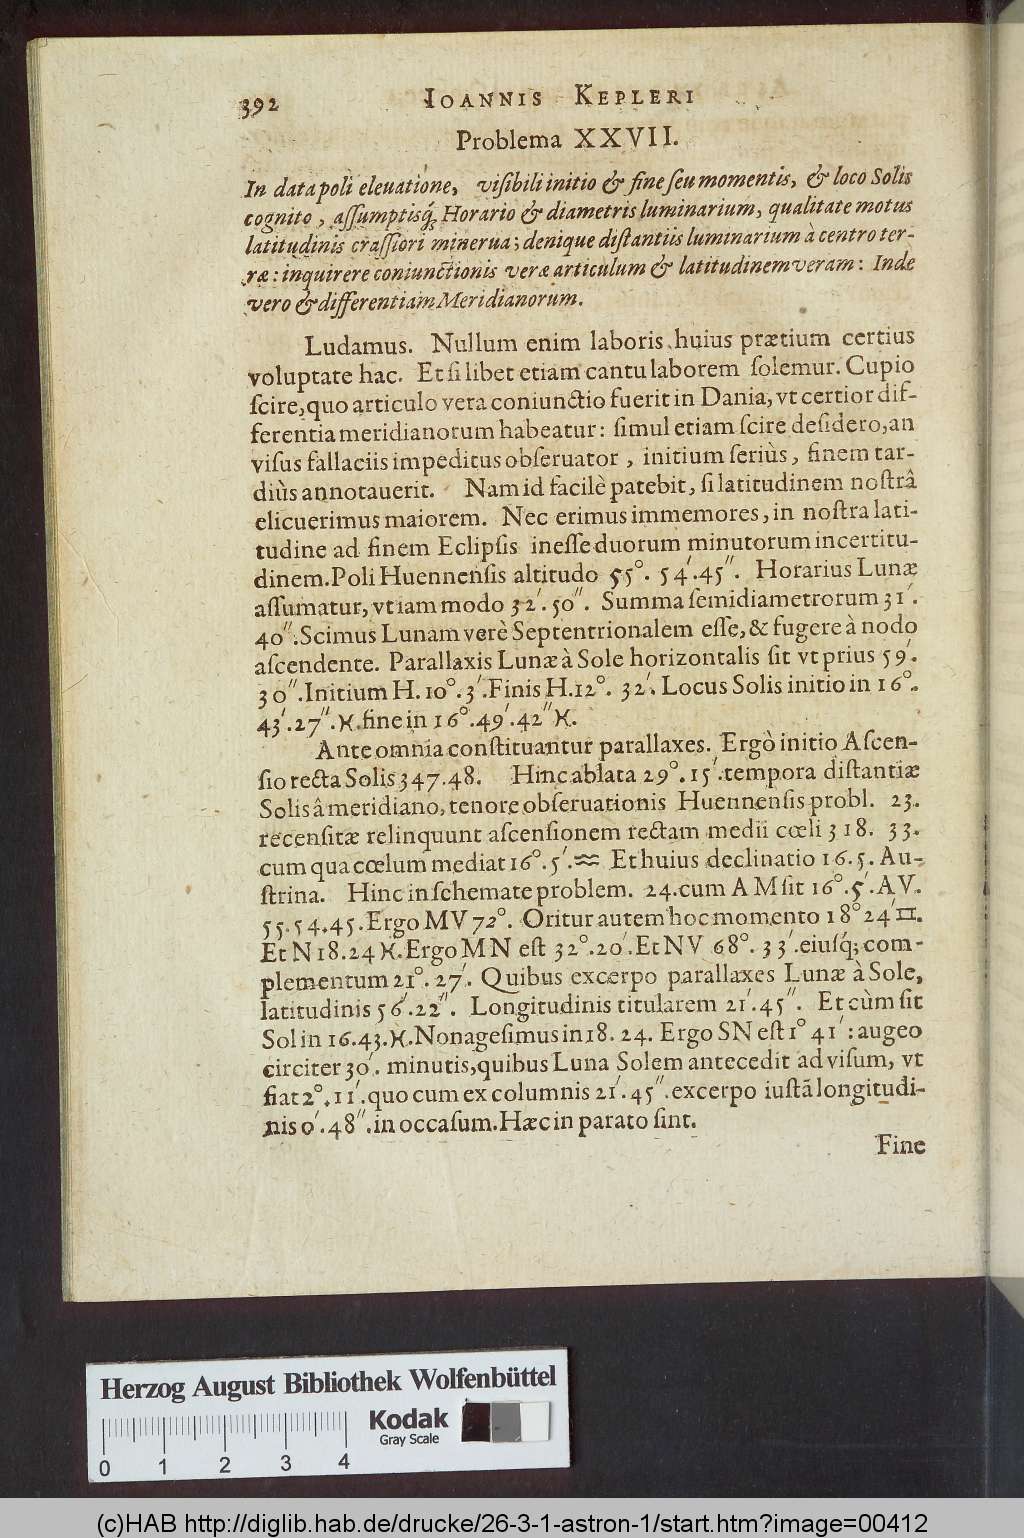 392 IOANNIS KEPLERI
Problema XXVII.
In data poli eleuatione, visibili initio & fine seu momentis, & loco Solis
cognito, assumptisq́; Horario & diametris luminarium, qualitate motus
latitudinis crassiori minerua; denique distantiis luminarium à centro ter-
ræ: inquirere coniunctionis veræ articulum & latitudinem veram: Inde
vero & differentiam Meridianorum.
Ludamus. Nullum enim laboris huius prætium certius
voluptate hac. Et si libet etiam cantu laborem solemur. Cupio
scire, quo articulo vera coniunctio fuerit in Dania, vt certior dif-
ferentia meridianorum habeatur: simul etiam scire desidero, an
visus fallaciis impeditus obseruator, initium seriùs, finem tar-
diùs annotauerit. Nam id facilè patebit, si latitudinem nostrâ
elicuerimus maiorem. Nec erimus immemores, in nostra lati-
tudine ad finem Eclipsis inesse duorum minutorum incertitu-
dinem. Poli Huennensis altitudo 55°. 54′. 45″. Horarius Lunæ
assumatur, vt iam modo 32′. 50″. Summa semidiametrorum 31′.
40″. Scimus Lunam verè Septentrionalem esse, & fugere à nodo
ascendente. Parallaxis Lunæ à Sole horizontalis sit vt prius 59′.
30″. Initium H. 10°. 3′. Finis H. 12°. 32′. Locus Solis initio in 16°.
43′. 27″. ♓. fine in 16°. 49′. 42″ ♓.
Ante omnia constituantur parallaxes. Ergò initio Ascen-
sio recta Solis 347. 48. Hinc ablata 29°. 15′. tempora distantiæ
Solis â meridiano, tenore obseruationis Huennensis probl. 23.
recensitæ relinquunt ascensionem rectam medii cœli 318. 33.
cum qua cœlum mediat 16°. 5′. ♒ Et huius declinatio 16. 5. Au-
strina. Hinc in schemate problem. 24. cum A M sit 16°. 5′. A V.
55. 54. 45. Ergo MV 72°. Oritur autem hoc momento 18° 24′ ♊.
Et N 18. 24 ♓. Ergo M N est 32°. 20′. Et N V 68°. 33′. eiusq́; com-
plementum 21°. 27′. Quibus excerpo parallaxes Lunæ à Sole,
latitudinis 56′. 22″. Longitudinis titularem 21′. 45″. Et cùm sit
Sol in 16. 43. ♓. Nonagesimus in 18. 24. Ergo SN est 1° 41′: augeo
circiter 30′. minutis, quibus Luna Solem antecedit ad visum, vt
fiat 2°. 11′. quo cum ex columnis 21′. 45″. excerpo iustā longitudi-
nis 0′. 48″. in occasum. Hæc in parato sint.
Fine
Herzog August Bibliothek Wolfenbüttel
Kodak
Gray Scale
0 1 2 3 4
(c)HAB http://diglib.hab.de/drucke/26-3-1-astron-1/start.htm?image=00412